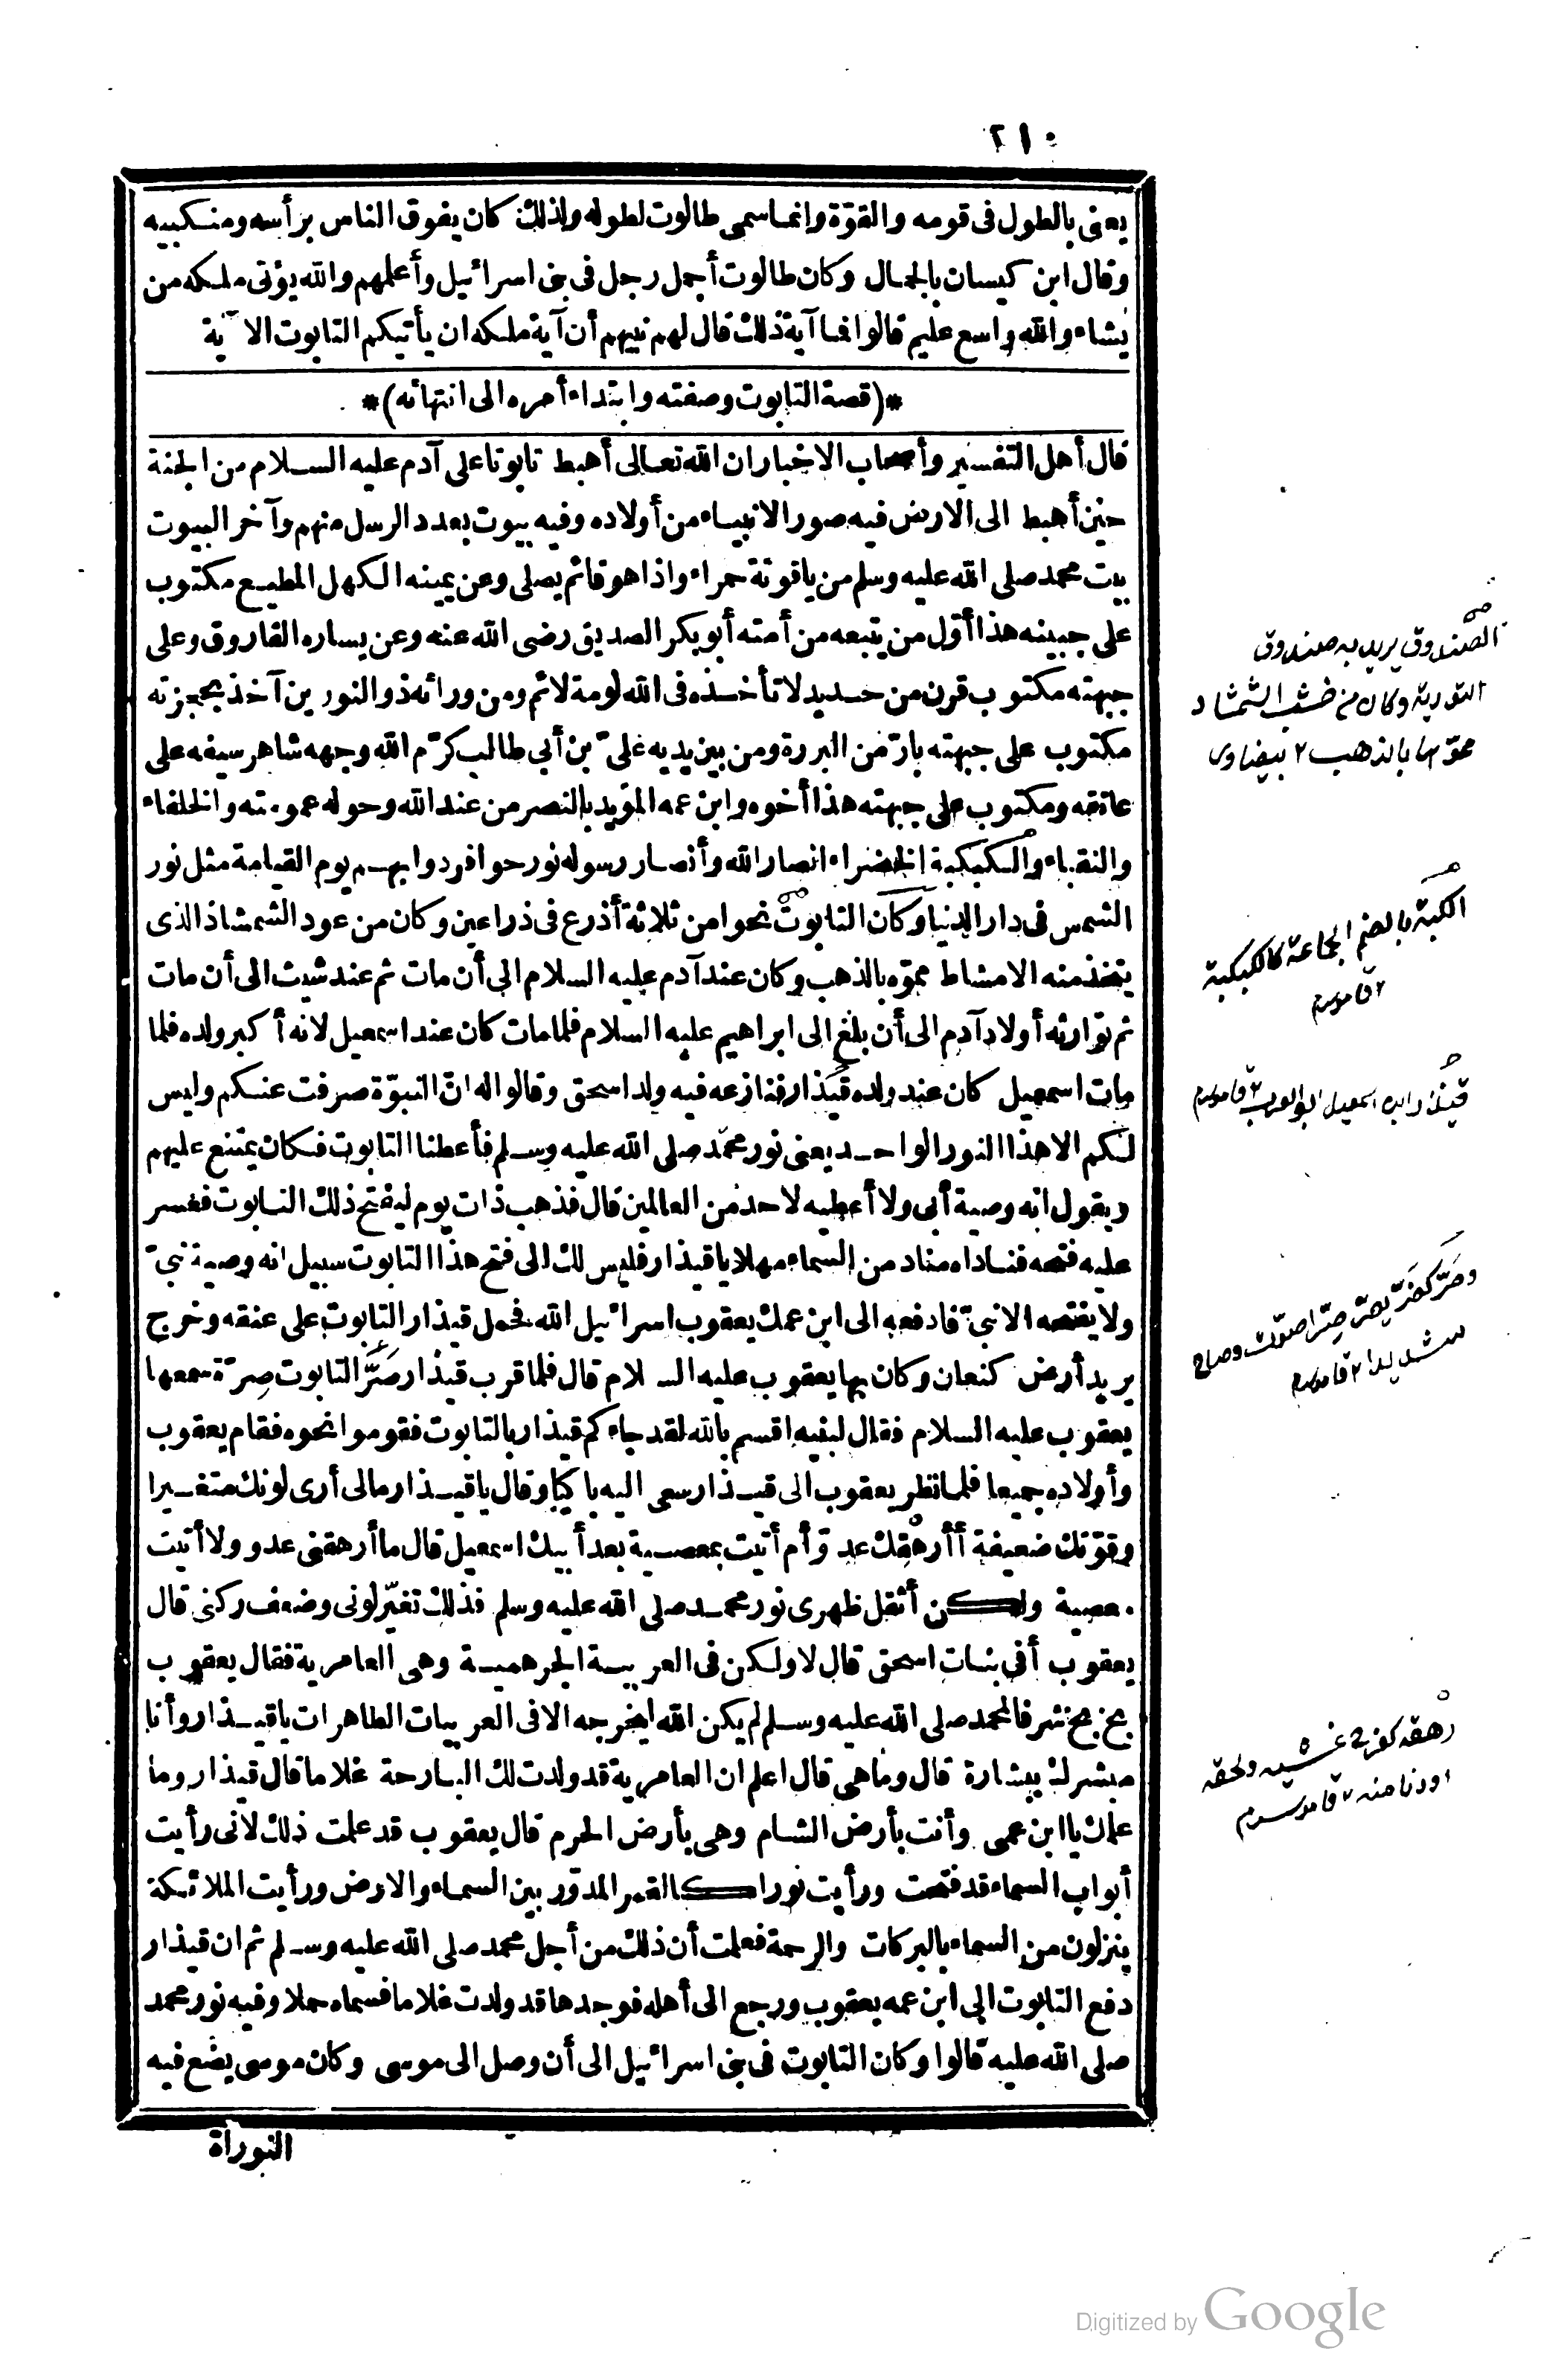 ٢١٠
يعنى بالطول فى قومه والقوّة وانما سمى طالوت لطوله ولذلك كان يفوق الناس برأسه ومنكبيه
وقال ابن كيسان بالجمال وكان طالوت أجمل رجل فى بنى اسرائيل وأعلمهم والله يؤتى ملكه من
يشاء والله واسع عليم قالوا فما آية ذلك قال لهم نبيهم أن آية ملكه ان يأتيكم التابوت الآية
*(قصة التابوت وصفته وابتداء أمره الى انتهائه)*
قال أهل التفسير وأصحاب الاخبار ان الله تعالى أهبط تابوتا على آدم عليه السلام من الجنة
حين أهبط الى الارض فيه صور الانبياء من أولاده وفيه بيوت بعدد الرسل منهم وآخر البيوت
بيت محمد صلى الله عليه وسلم من ياقوتة حمراء واذا هو قائم يصلى وعن يمينه الكهل المطيع مكتوب
على جبينه هذا أوّل من يتبعه من أمته أبو بكر الصديق رضى الله عنه وعن يساره الفاروق وعلى
جبهته مكتوب قرن من حديد لا تأخذه فى الله لومة لائم ومن ورائه ذو النورين آخذ بحجزته
مكتوب على جبهته بارّ من البررة ومن بين يديه علىّ بن أبى طالب كرّم الله وجهه شاهر سيفه على
عاتقه ومكتوب على جبهته هذا أخوه وابن عمه المؤيد بالنصر من عند الله وحوله عمومته والخلفاء
والنقباء والكبكبة الخضراء انصار الله وأنصار رسوله نور حوافر دوابهم يوم القيامة مثل نور
الشمس فى دار الدنيا وكان التابوت نحوا من ثلاثة أذرع فى ذراعين وكان من عود الشمشاذ الذى
يتخذ منه الامشاط مموّه بالذهب وكان عند آدم عليه السلام الى أن مات ثم عند شيث الى أن مات
ثم توارثه أولاد آدم الى أن بلغ الى ابراهيم عليه السلام فلما مات كان عند اسمعيل لانه أكبر ولده فلما
مات اسمعيل كان عند ولده قيذار فنازعه فيه ولد اسحق وقالوا له انّ النبوّة صرفت عنكم وليس
لكم الا هذا النور الواحد يعنى نور محمّد صلى الله عليه وسلم فأعطنا التابوت فكان يمتنع عليهم
ويقول انه وصية أبى ولا أعطيه لاحد من العالمين قال فذهب ذات يوم ليفتح ذلك التابوت فعسر
عليه فتحه فناداه مناد من السماء مهلا يا قيذار فليس لك الى فتح هذا التابوت سبيل انه وصية نبىّ
ولا يفتحه الا نبىّ فادفعه الى ابن عمك يعقوب اسرائيل الله فحمل قيذار التابوت على عنقه وخرج
يريد أرض كنعان وكان بها يعقوب عليه السلام قال فلما قرب قيذار صَرَّ التابوت صِرّة سمعها
يعقوب عليه السلام فقال لبنيه اقسم بالله لقد جاءكم قيذار بالتابوت فقوموا نحوه فقام يعقوب
وأولاده جميعا فلما نظر يعقوب الى قيذار سعى اليه باكيا وقال يا قيذار مالى أرى لونك متغيرا
وقوّتك ضعيفة أأرهقك عدوّ أم أتيت بمعصية بعد أبيك اسمعيل قال ما أرهقنى عدو ولا أتيت
معصية ولكن أثقل ظهرى نور محمد صلى الله عليه وسلم فذلك تغيّر لونى وضعف ركنى قال
يعقوب أفى بنات اسحق قال لا ولكن فى العربية الجرهمية وهى العامرية فقال يعقوب
بخ بخ شرفا لمحمد صلى الله عليه وسلم لم يكن الله ليخرجه الا فى العربيات الطاهرات يا قيذار وأنا
مبشرك ببشارة قال وما هى قال اعلم ان العامرية قد ولدت لك البارحة غلاما قال قيذار وما
علمك يا ابن عمى وأنت بأرض الشام وهى بأرض الحرم قال يعقوب قد علمت ذلك لانى رأيت
أبواب السماء قد فتحت ورأيت نورا كالقمر المدّور بين السماء والارض ورأيت الملائكة
ينزلون من السماء بالبركات والرحمة فعلمت أن ذلك من أجل محمد صلى الله عليه وسلم ثم ان قيذار
دفع التابوت الى ابن عمه يعقوب ورجع الى أهله فوجدها قد ولدت غلاما فسماه حملا وفيه نور محمد
صلى الله عليه قالوا وكان التابوت فى بنى اسرائيل الى أن وصل الى موسى وكان موسى يضع فيه
التوراة
الصندوق يريد به صندوق
التورية وكان من خشب الشمشاد
مموّها بالذهب ٢ بيضاوى
الكبة بالضم الجماعة كالكبكبة
٢ قاموس
قيذار ابن اسمعيل ابو العرب ٢ قاموس
وصَرَّ كفرّ يصرّ صرّا صوّت وصاح
شديدا ٢ قاموس
رهقه كفرح غشيه ولحقه
او دنا منه ٢ قاموس
Digitized by Google